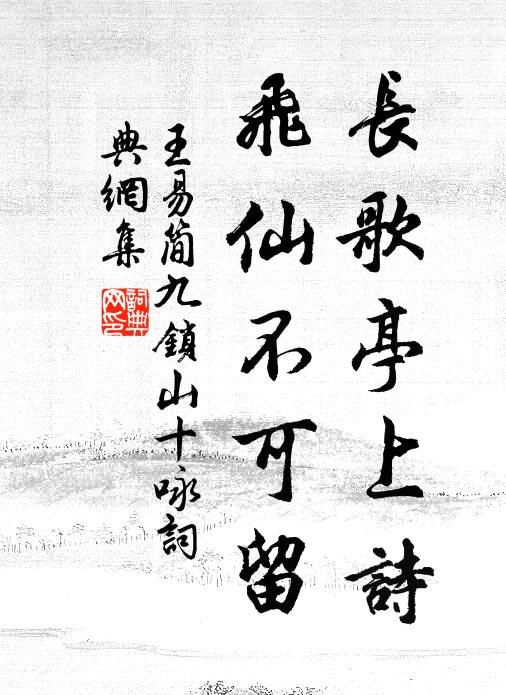 長歌亭上詩
飛仙不可留
王易简九鎖山十咏詞
典網集
詞典
网印